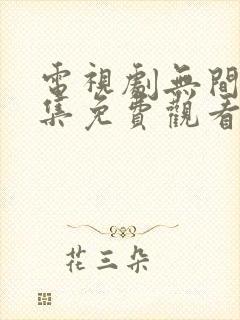 電視劇無間
集免費觀看
花三朵